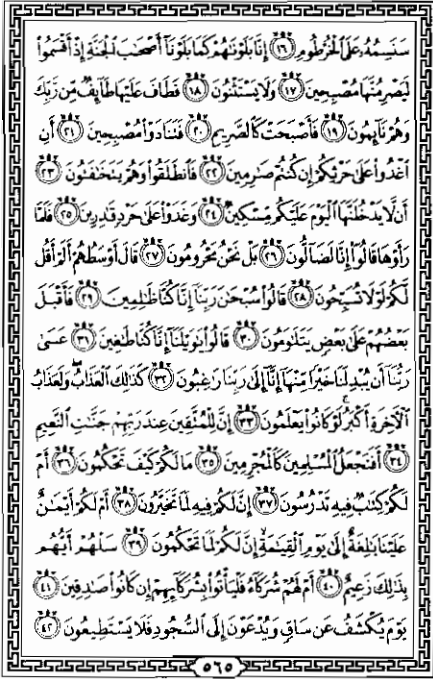 سَنَسِمُهُۥ عَلَى ٱلْخُرْطُومِ ١٦ إِنَّا بَلَوْنَٰهُمْ كَمَا بَلَوْنَآ أَصْحَٰبَ ٱلْجَنَّةِ إِذْ أَقْسَمُوا۟
لَيَصْرِمُنَّهَا مُصْبِحِينَ ١٧ وَلَا يَسْتَثْنُونَ ١٨ فَطَافَ عَلَيْهَا طَآئِفٌ مِّن رَّبِّكَ
وَهُمْ نَآئِمُونَ ١٩ فَأَصْبَحَتْ كَٱلصَّرِيمِ ٢٠ فَتَنَادَوْا۟ مُصْبِحِينَ ٢١ أَنِ
ٱغْدُوا۟ عَلَىٰ حَرْثِكُمْ إِن كُنتُمْ صَٰرِمِينَ ٢٢ فَٱنطَلَقُوا۟ وَهُمْ يَتَخَٰفَتُونَ ٢٣
أَن لَّا يَدْخُلَنَّهَا ٱلْيَوْمَ عَلَيْكُم مِّسْكِينٌ ٢٤ وَغَدَوْا۟ عَلَىٰ حَرْدٍ قَٰدِرِينَ ٢٥ فَلَمَّا
رَأَوْهَا قَالُوٓا۟ إِنَّا لَضَآلُّونَ ٢٦ بَلْ نَحْنُ مَحْرُومُونَ ٢٧ قَالَ أَوْسَطُهُمْ أَلَمْ أَقُل
لَّكُمْ لَوْلَا تُسَبِّحُونَ ٢٨ قَالُوا۟ سُبْحَٰنَ رَبِّنَآ إِنَّا كُنَّا ظَٰلِمِينَ ٢٩ فَأَقْبَلَ
بَعْضُهُمْ عَلَىٰ بَعْضٍ يَتَلَٰوَمُونَ ٣٠ قَالُوا۟ يَٰوَيْلَنَآ إِنَّا كُنَّا طَٰغِينَ ٣١ عَسَىٰ
رَبُّنَآ أَن يُبْدِلَنَا خَيْرًا مِّنْهَآ إِنَّآ إِلَىٰ رَبِّنَا رَٰغِبُونَ ٣٢ كَذَٰلِكَ ٱلْعَذَابُ ۖ وَلَعَذَابُ
ٱلْءَاخِرَةِ أَكْبَرُ ۚ لَوْ كَانُوا۟ يَعْلَمُونَ ٣٣ إِنَّ لِلْمُتَّقِينَ عِندَ رَبِّهِمْ جَنَّٰتِ ٱلنَّعِيمِ
٣٤ أَفَنَجْعَلُ ٱلْمُسْلِمِينَ كَٱلْمُجْرِمِينَ ٣٥ مَا لَكُمْ كَيْفَ تَحْكُمُونَ ٣٦ أَمْ
لَكُمْ كِتَٰبٌ فِيهِ تَدْرُسُونَ ٣٧ إِنَّ لَكُمْ فِيهِ لَمَا تَخَيَّرُونَ ٣٨ أَمْ لَكُمْ أَيْمَٰنٌ
عَلَيْنَا بَٰلِغَةٌ إِلَىٰ يَوْمِ ٱلْقِيَٰمَةِ ۙ إِنَّ لَكُمْ لَمَا تَحْكُمُونَ ٣٩ سَلْهُمْ أَيُّهُم
بِذَٰلِكَ زَعِيمٌ ٤٠ أَمْ لَهُمْ شُرَكَآءُ فَلْيَأْتُوا۟ بِشُرَكَآئِهِمْ إِن كَانُوا۟ صَٰدِقِينَ ٤١
يَوْمَ يُكْشَفُ عَن سَاقٍ وَيُدْعَوْنَ إِلَى ٱلسُّجُودِ فَلَا يَسْتَطِيعُونَ ٤٢
٥٦٥